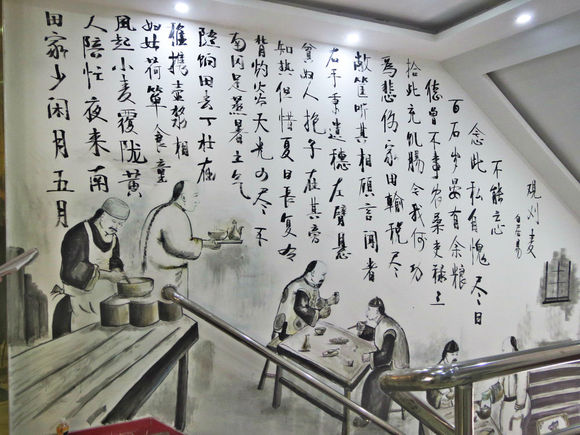 田家少闲月五月
人陪忙夜来南
风起小麦覆陇黄
妇姑荷箪食童
稚携壶浆相
随饷田去丁壮在
南冈足蒸暑土气
背灼炎天光力尽不
知热但惜夏日长复有
贫妇人抱子在其旁
右手秉遗穗左臂悬
敝筐听其相顾言闻者
为悲伤家田输税尽
拾此充饥肠今我何功
德曾不事农桑吏禄三
百石岁晏有余粮
念此私自愧尽日
不能忘
观刈麦
白居易